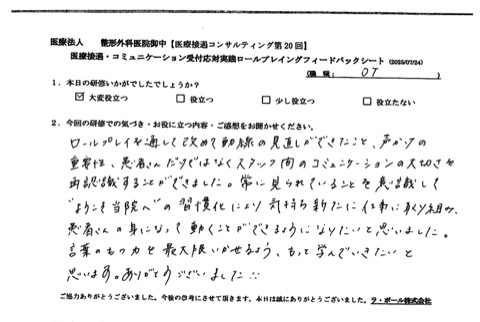 医療法人　整形外科医院御中【医療接遇コンサルティング第20回】
医療接遇・コミュニケーション受付応対実践ロールプレイングフィードバックシート (2025/07/24)
(職種: OT )
1．本日の研修いかがでしたでしょうか？
☑ 大変役立つ　□ 役立つ　□ 少し役立つ　□ 役立たない
2．今回の研修での気づき・お役に立つ内容・ご感想をお聞かせください。
ロールプレイを通して改めて動線の見直しができたこと、声かけの
重要性、患者さんだけではなくスタッフ間のコミュニケーションの大切さを
再認識することができました。常に見られていることを意識して
"ようこそ当院へ"の習慣化により気持ち新たに仕事に取り組み、
患者さんの身になって動くことができるようになりたいと思いました。
言葉のもつ力を最大限いかせるよう、もっと学んでいきたいと
思います。ありがとうございました
ご協力ありがとうございました。今後の参考にさせて頂きます。本日は誠にありがとうございました。ラ・ポール株式会社